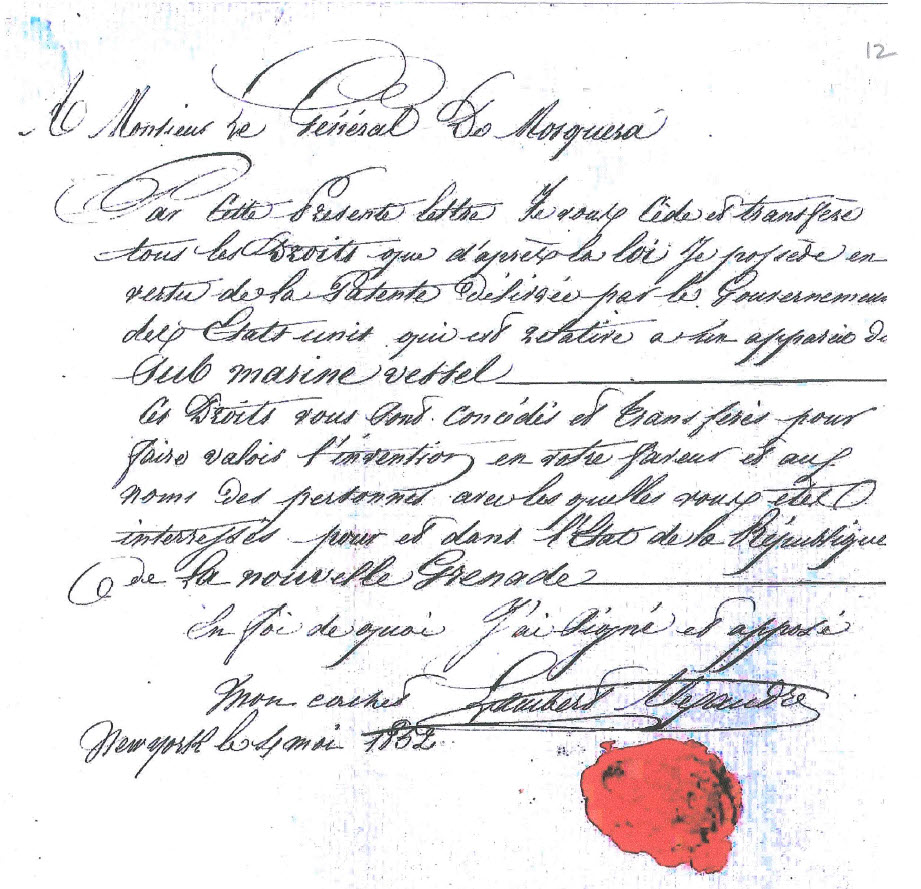 12
A Monsieur Le Général De Mosquera
Par Cette Présente lettre Je vous Cède et transfère
tous les Droits que d'après la loi Je possède en
vertu de la Patente Délivrée par le Gouvernement
des Etats-unis qui est relative a un appareil de
Sub marine vessel
Ces Droits vous sont concédés et transférés pour
faire valoir l'invention en votre faveur et aux
noms des personnes avec les quelles vous êtes
interressés pour et dans l'Etat de la République
de la nouvelle Grenade
En foi de quoi J'ai Signé et apposé
Mon cachet Alexandre
New york le 4 mai 1852